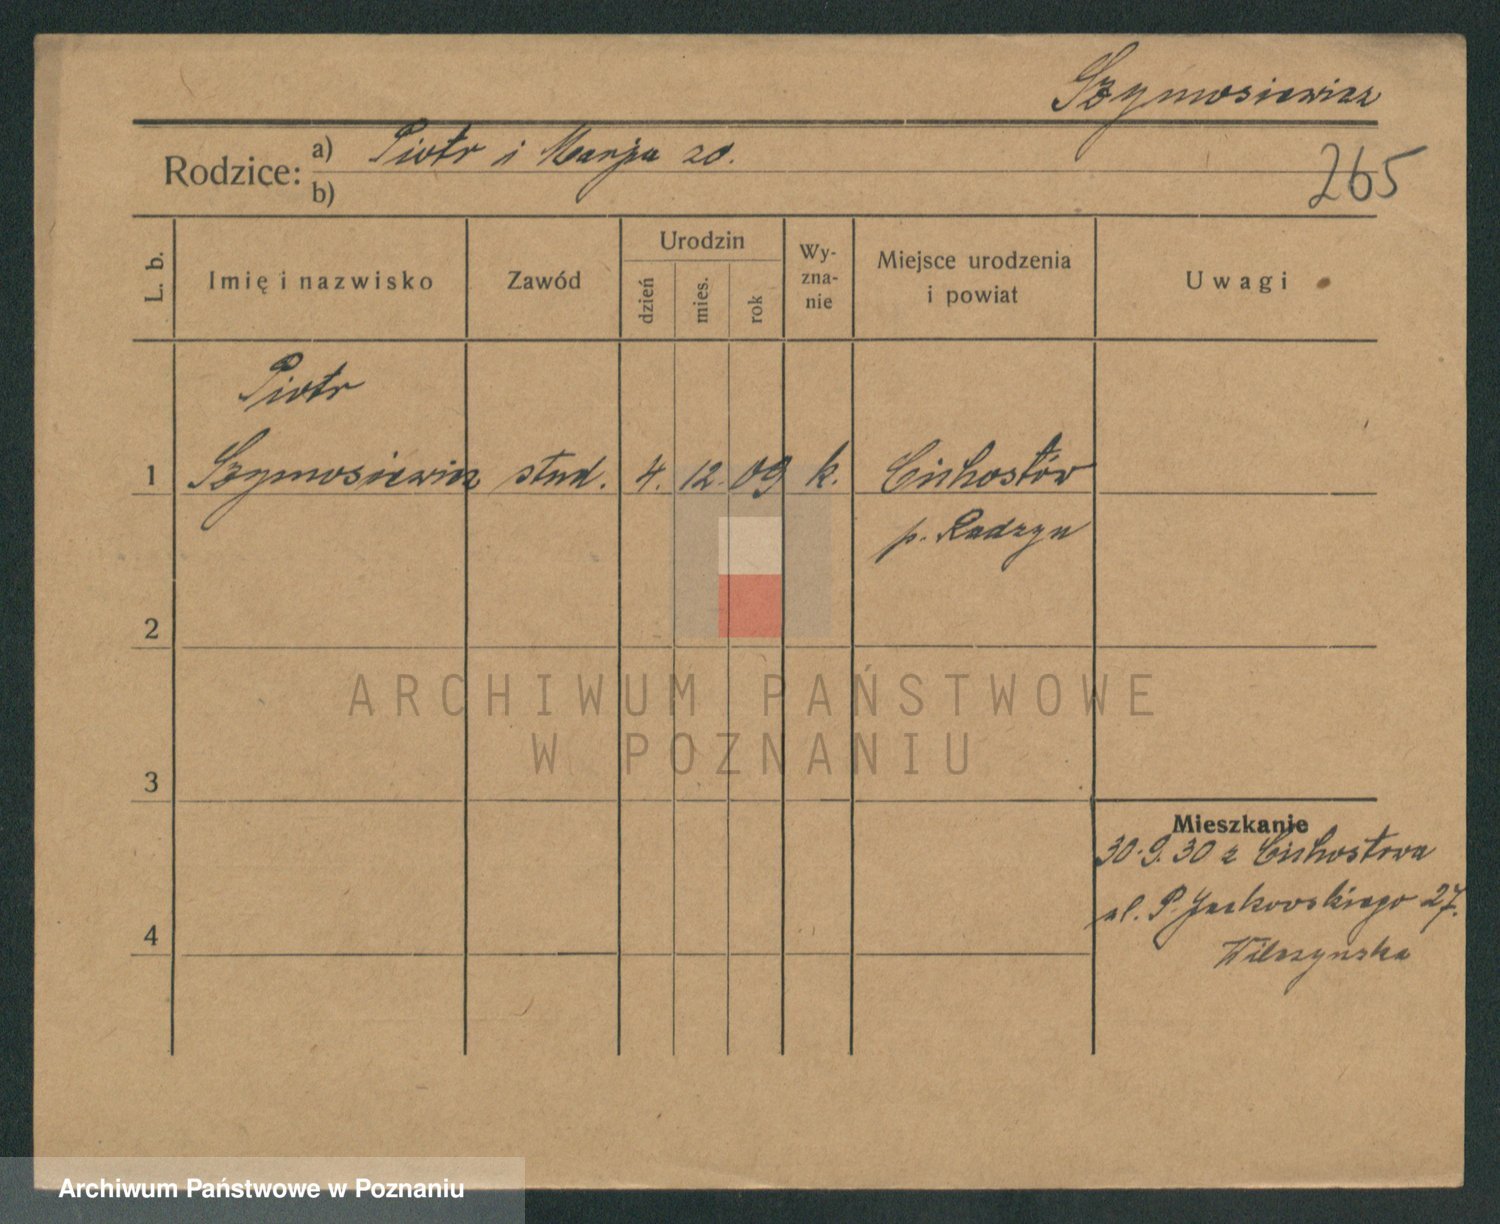 Szymosiewicz
Rodzice: a) Piotr i Marja zd.
b)
265
L. b.
Imię i nazwisko
Zawód
Urodzin
dzień
mies.
rok
Wy-
zna-
nie
Miejsce urodzenia
i powiat
Uwagi
Piotr
1 Szymosiewicz stud. 4. 12. 09 k. Cichostów
p. Radzyn
2
ARCHIWUM PAŃSTWOWE
W POZNANIU
3
Mieszkanie
30.9.30 z Cichostowa
ul. P. Jackowskiego 27.
4
Wilczyńska
Archiwum Państwowe w Poznaniu